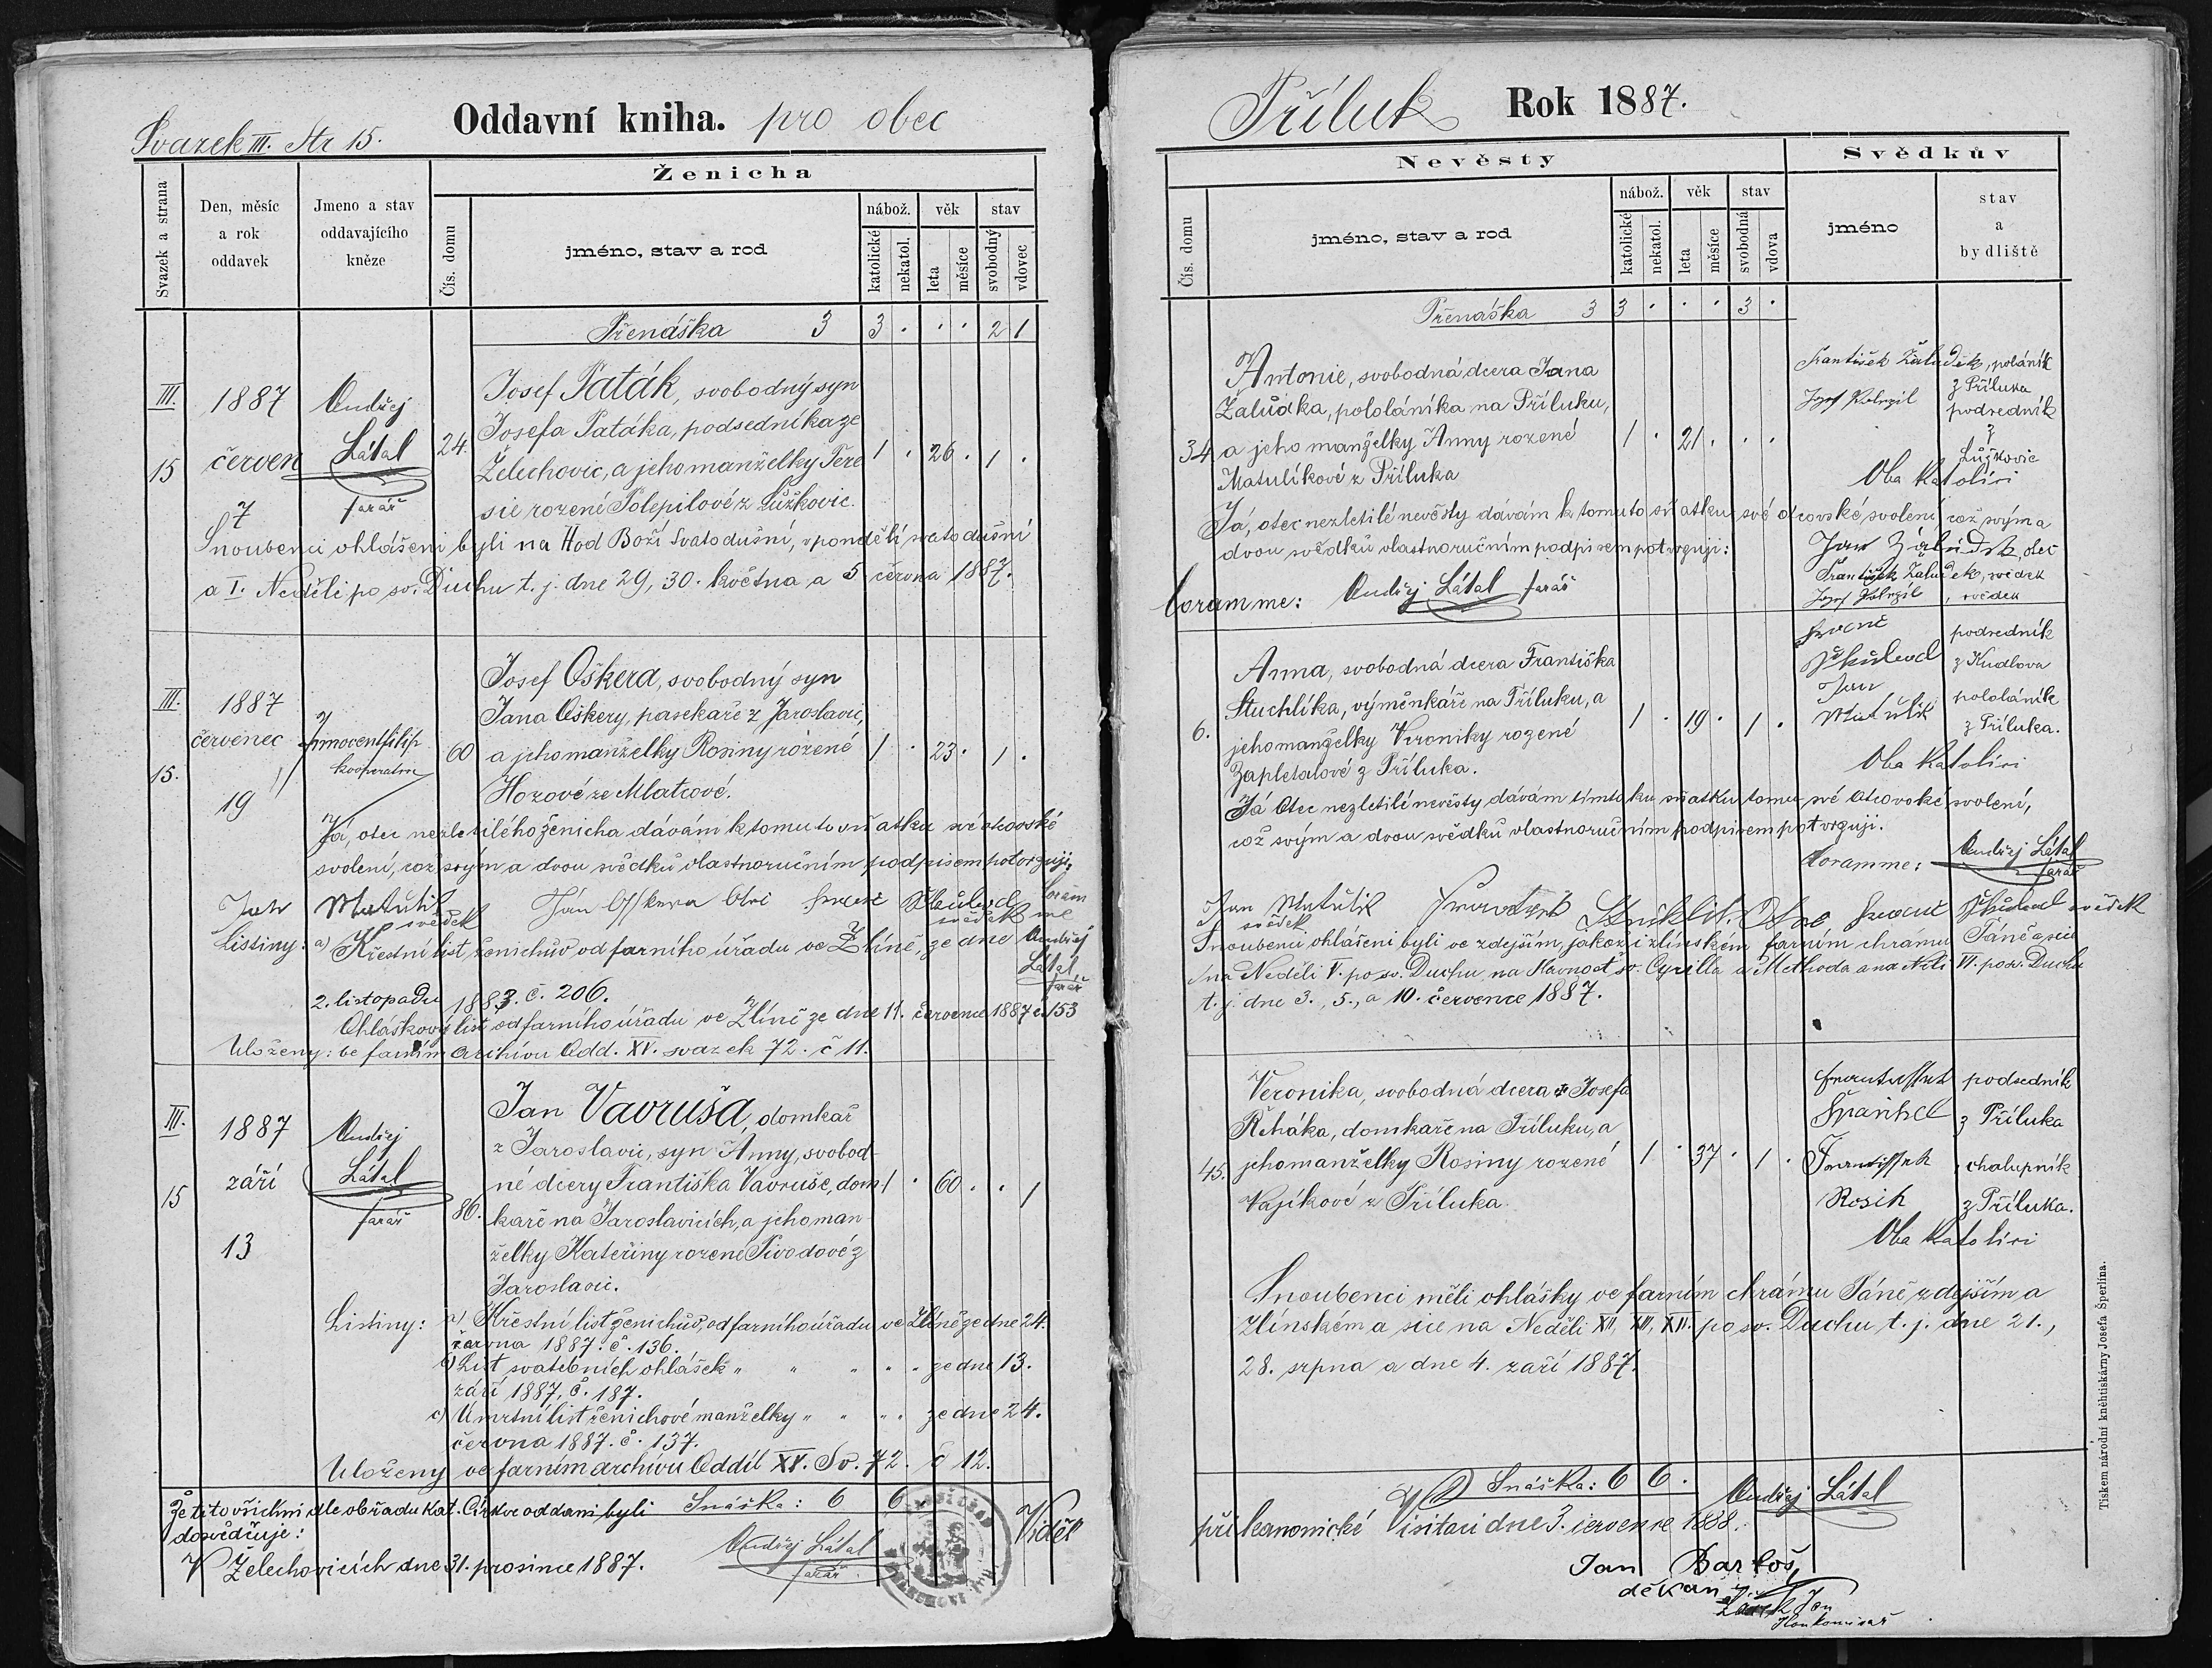 Svazek III. Str 15.
Oddavní kniha. pro obec
Svazek a strana
Den, měsíc
a rok
oddavek
Jmeno a stav
oddavajícího
kněze
Ženicha
Čís. domu
jméno, stav a rod
nábož.
věk
stav
katolické
nekatol.
leta
měsíce
svobodný
vdovec
Přenáška 3 3 . . . 2 1
III.
15
1887
červen
7
Ondřej
Látal
farář
24.
Josef Paták, svobodný syn
Josefa Patáka, podsedníka ze
Želechovic, a jeho manželky Tere
sie rozené Polepilové z Lůžkovic.
1 . 26 . 1 .
Snoubenci ohlášeni byli na Hod Boží Svatodušní, v pondělí svatodušní
a I. Neděli po sv. Duchu t. j. dne 29, 30. května a 5 června 1887.
III.
15.
1887
červenec
19
Innocent Filip
kooperator
60
Josef Oškera, svobodný syn
Jana Oškery, pasekáře z Jaroslavic,
a jeho manželky Rosiny rozené
Horové ze Mlatcové.
1 . 23 . 1 .
Já, otec nezletilého ženicha dávám k tomuto sňatku své otcovské
svolení, což svým a dvou svědků vlastnoručním podpisem potvrzuji.
Jan Matulík
svědek
Ján Oškera Otci
svědek
Coram
me
Ondřej
Látal
farář
Listiny: a) Křestní list ženichův od farního úřadu ve Zlíně, ze dne
2. listopadu 1883. č. 206.
Ohláškový list od farního úřadu ve Zlíně ze dne 11. července 1887 č. 153
Uloženy: ve farním archivu Odd. XV. svazek 72. č 11.
III.
15
1887
září
13
Ondřej
Látal
farář
86.
Jan Vavruša, domkař
z Jaroslavic, syn Anny, svobod-
né dcery Františka Vavruše, dom
kaře na Jaroslavicích, a jeho man-
želky Kateřiny rozené Pivodové z
Jaroslavic.
1 . 60 . . 1
Listiny: a) Křestní list ženichův, od farního úřadu ve Zlíně ze dne 24.
června 1887. č. 136.
b) List svatebních ohlášek " " " " " ze dne 13.
září 1887, č. 187.
c) Úmrtní list ženichové manželky " " " " ze dne 24.
června 1887. č. 137.
Uloženy ve farním archivu Oddíl XV. Sv. 72. č 12.
Že tito všichni dle obřadu kat. Církve oddani byli
dosvědčuje:
Snáška: 6 6
V Želechovicích dne 31. prosince 1887.
Ondřej Látal
farář
Viděl
Příluk Rok 1887.
Nevěsty
Svědkův
Čís. domu
jméno, stav a rod
nábož.
věk
stav
katolické
nekatol.
leta
měsíce
svobodná
vdova
jméno
stav
a
bydliště
Přenáška 3 3 . . . 3 .
34
Antonie, svobodná dcera Jana
Žalůdka, pololáníka na Příluku,
a jeho manželky Anny rozené
Matulíkové z Příluka
1 . 21 . . .
František Žaludek, pololáník
z Příluka
podsedník
z
Lůžkovic
Oba katolíci
Já, otec nezletilé nevěsty dávám k tomuto sňatku své otcovské svolení což svým a
dvou svědků vlastnoručním podpisem potvrzuji:
Jan Žaludek, otec
František Žaludek, svědek
, svědek
Coram me: Ondřej Látal farář
6.
Anna, svobodná dcera Františka
Stuchlíka, výměnkáře na Příluku, a
jeho manželky Veroniky rozené
Zapletalové z Příluka.
1 . 19 . 1 .
podsedník
z Kudlova
Jan
Matulík
pololáník
z Příluka.
Oba katolíci
Já Otec nezletilé nevěsty dávám tímto ku sňatku tomu své otcovské svolení,
což svým a dvou svědků vlastnoručním podpisem potvrzuji.
Coram me: Ondřej Látal
farář
Jan Matulík
svědek
svědek
Snoubenci ohlášeni byli ve zdejším, jakož i zlínském farním chrámu Páně a sice
na Neděli V. po sv. Duchu na Slavnosť sv. Cyrilla a Methoda a na Neděli VI. po sv. Duchu
t. j. dne 3., 5., a 10. července 1887.
45.
Veronika, svobodná dcera Josefa
Řeháka, domkaře na Příluku, a
jeho manželky Rosiny rozené
Vajíkové z Příluka.
1 . 37 . 1 .
podsedník
z Příluka
chalupník
z Příluka.
Oba katolíci
Snoubenci měli ohlášky ve farním chrámu Páně zdejším a
Zlínském a sice na Neděli XII, XIII, XIV. po sv. Duchu t. j. dne 21.,
28. srpna a dne 4. září 1887.
Snáška: 6 6.
při kanonické Visitaci dne 3. července 1888.
Ondřej Látal
Jan Bartoš,
děkan
Tiskem národní kněhtiskárny Josefa Šperlína.